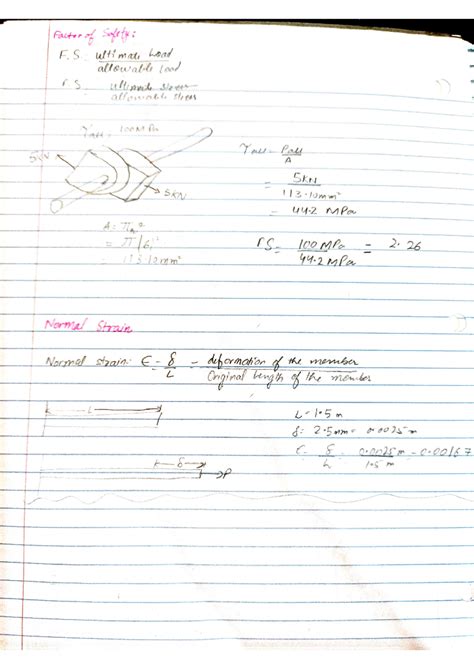 Factor of Safety:
F.S. ultimate Load
allowable Load
F.S. ultimate stress
allowable stress
100MPa
5KN
5KN
A = πr²
= π(6)²
= 113.10mm²
τall = Pall
A
= 5KN
113.10mm²
= 44.2 MPa
FS = 100MPa = 2.26
44.2 MPa
Normal Strain
Normal strain: ϵ = δ = deformation of the member
L Original length of the member
L
δ
P
L = 1.5 m
δ: 2.5mm = 0.0025 m
ϵ = δ = 0.0025m = 0.00167
L 1.5 m